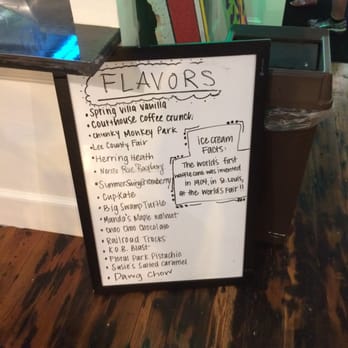 FLAVORS
• Spring Villa Vanilla
• Courthouse Coffee Crunch
• Chunky Monkey Park
• Lee County Fair
• Herring Heath
• Raspberry
• Summer Swing
• Cup-Kate
• Big Swamp Turtle
• Manda's Maple Walnut
• Choo Choo Chocolate
• Railroad Tracks
• K.O.B. Blast
• Floral Park Pistachio
• Susie's Salted Caramel
• Dawg Chow
ice cream
Facts:
The World's first
waffle cone was invented
in 1904, in St. Louis,
at the World's Fair!!